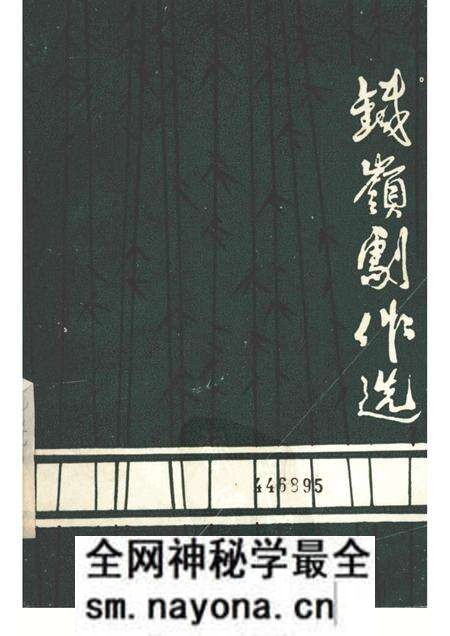 鐵嶺劇作选
446895
全网神秘学最全
sm.nayona.cn